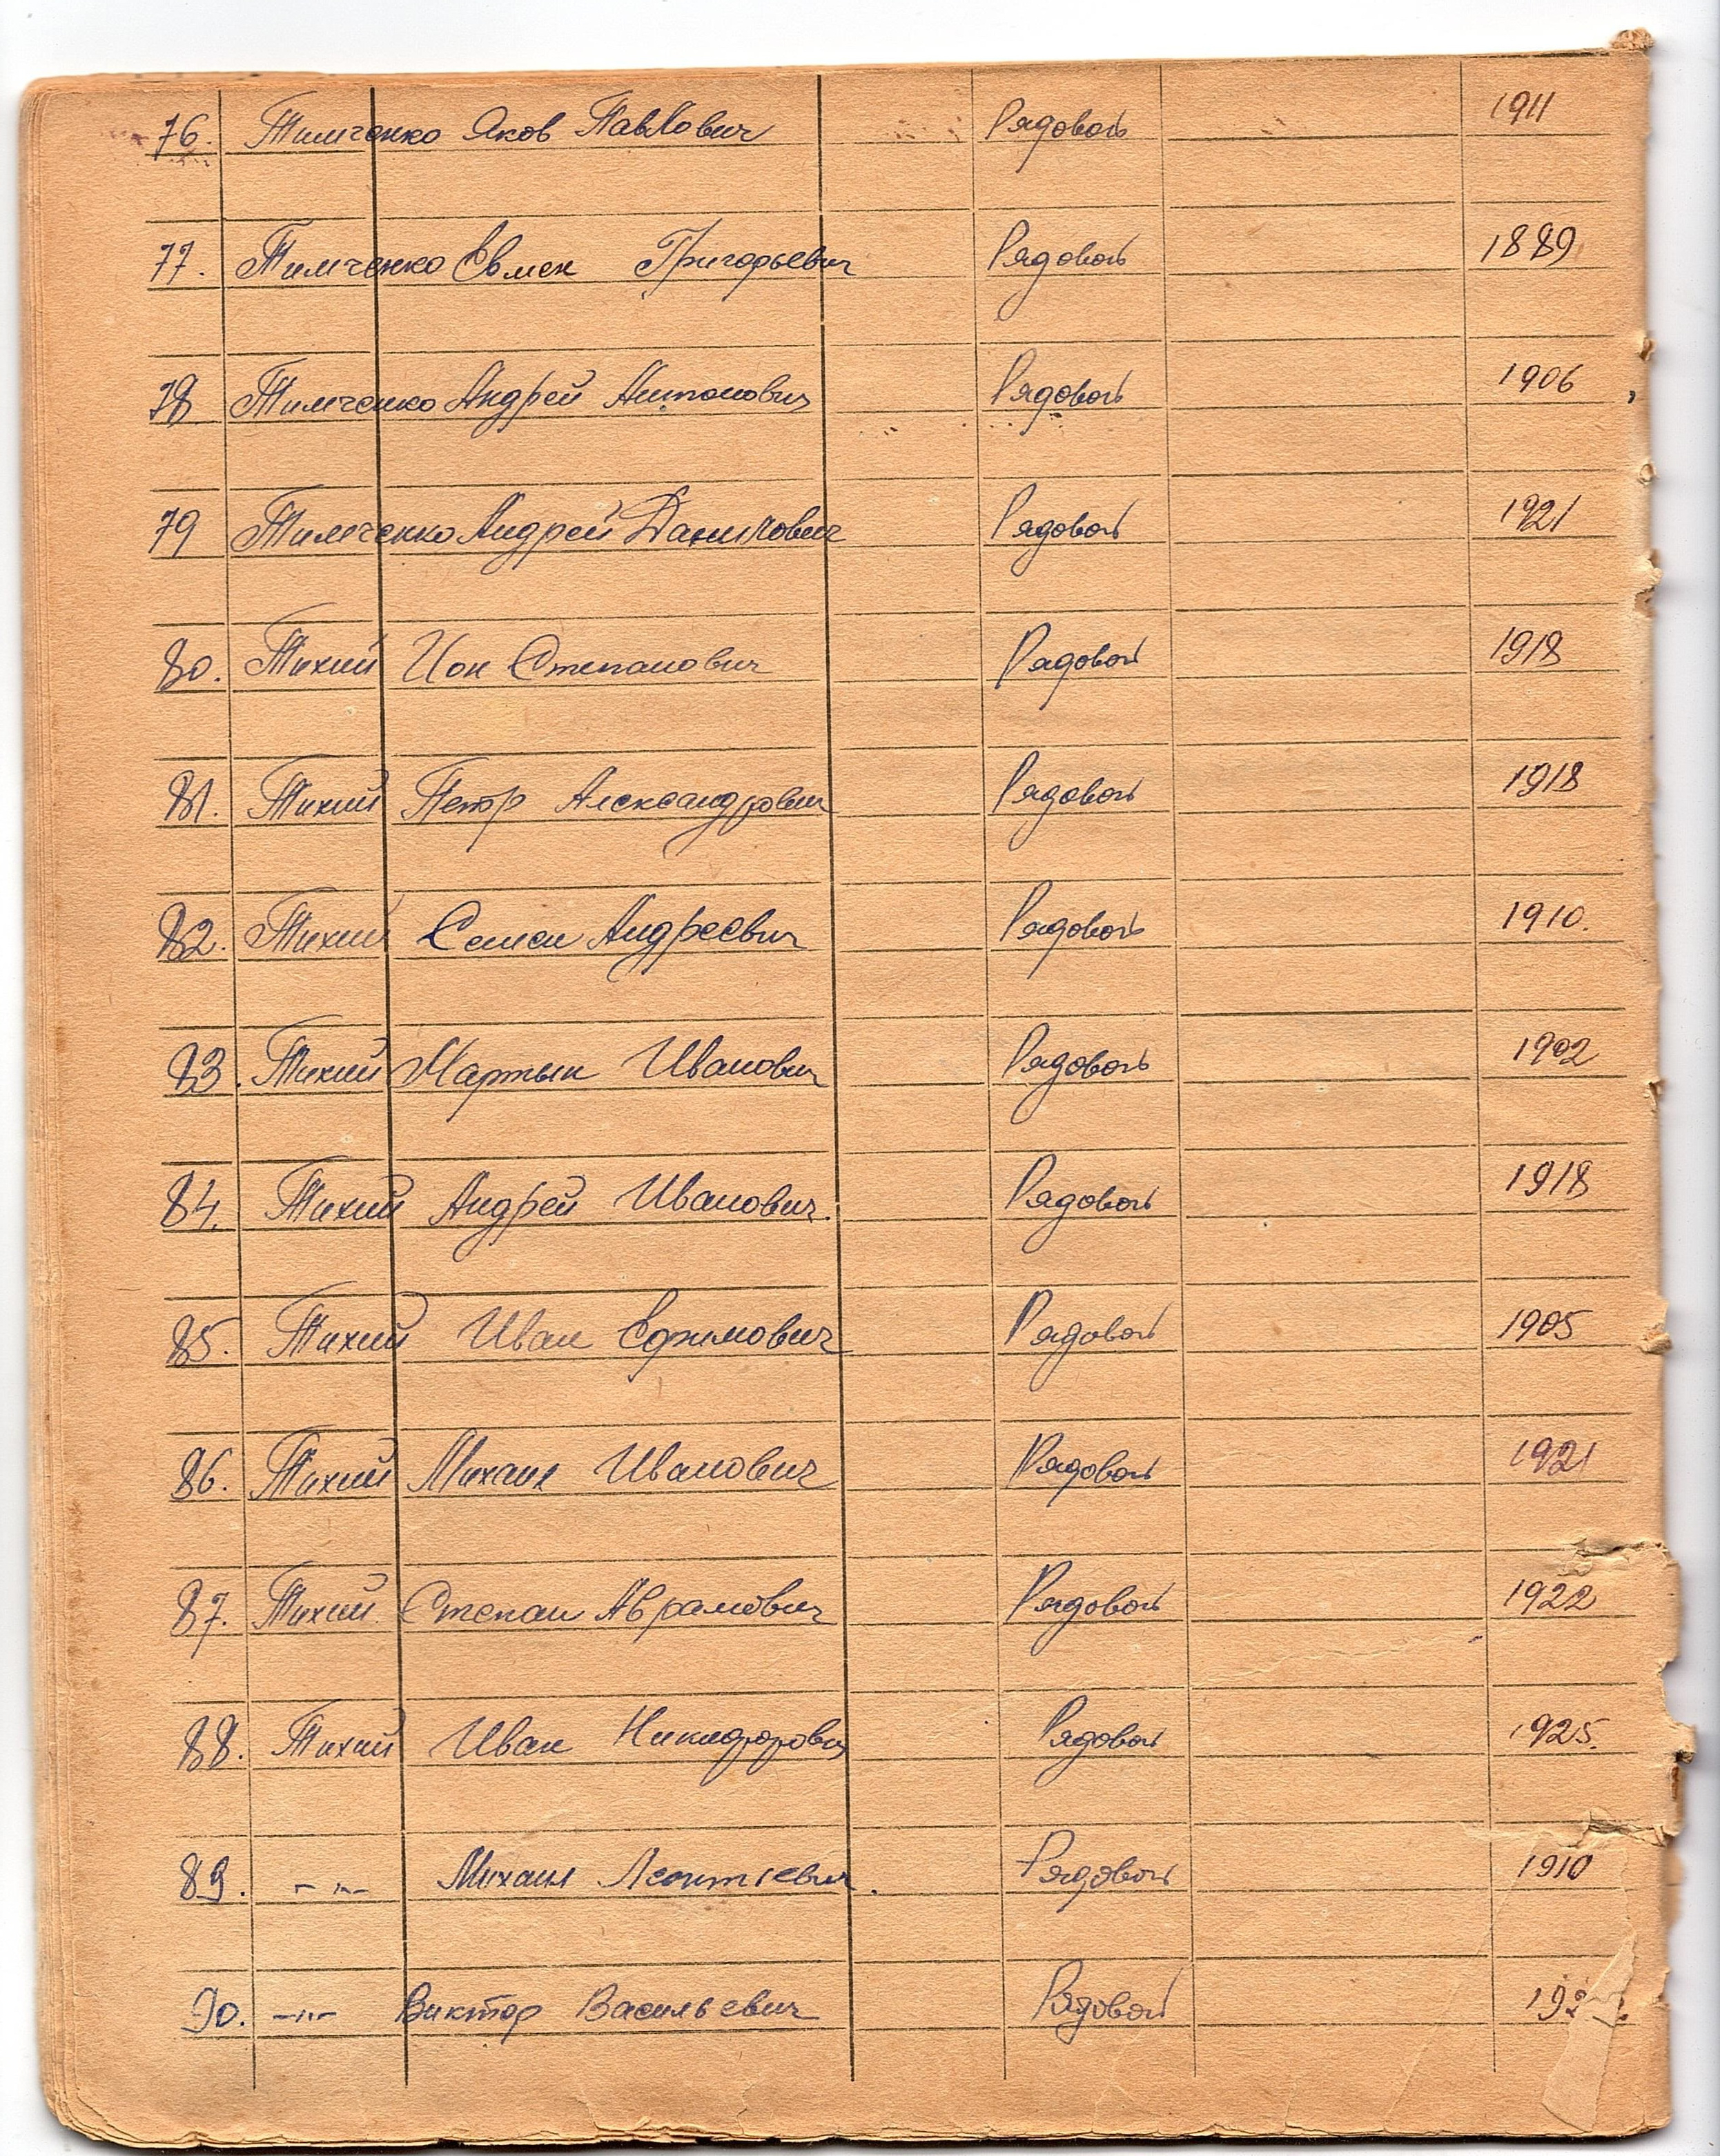 76. Тимченко Яков Павлович Рядовой 1911
77. Тимченко Евмен Григорьевич Рядовой 1889
78 Тимченко Андрей Антонович Рядовой 1906
79 Тимченко Андрей Данилович Рядовой 1921
80. Тихий Ион Степанович Рядовой 1918
81. Тихий Петр Александрович Рядовой 1918
82. Тихий Семен Андреевич Рядовой 1910.
83. Тихий Мартын Иванович Рядовой 1902
84. Тихий Андрей Иванович. Рядовой 1918
85. Тихий Иван Ефимович Рядовой 1905
86. Тихий Михаил Иванович Рядовой 1921
87. Тихий Степан Аврамович Рядовой 1922
88. Тихий Иван Никифорович Рядовой 1925.
89. -"- Михаил Леонтиевич. Рядовой 1910
90. -"- Виктор Васильевич Рядовой